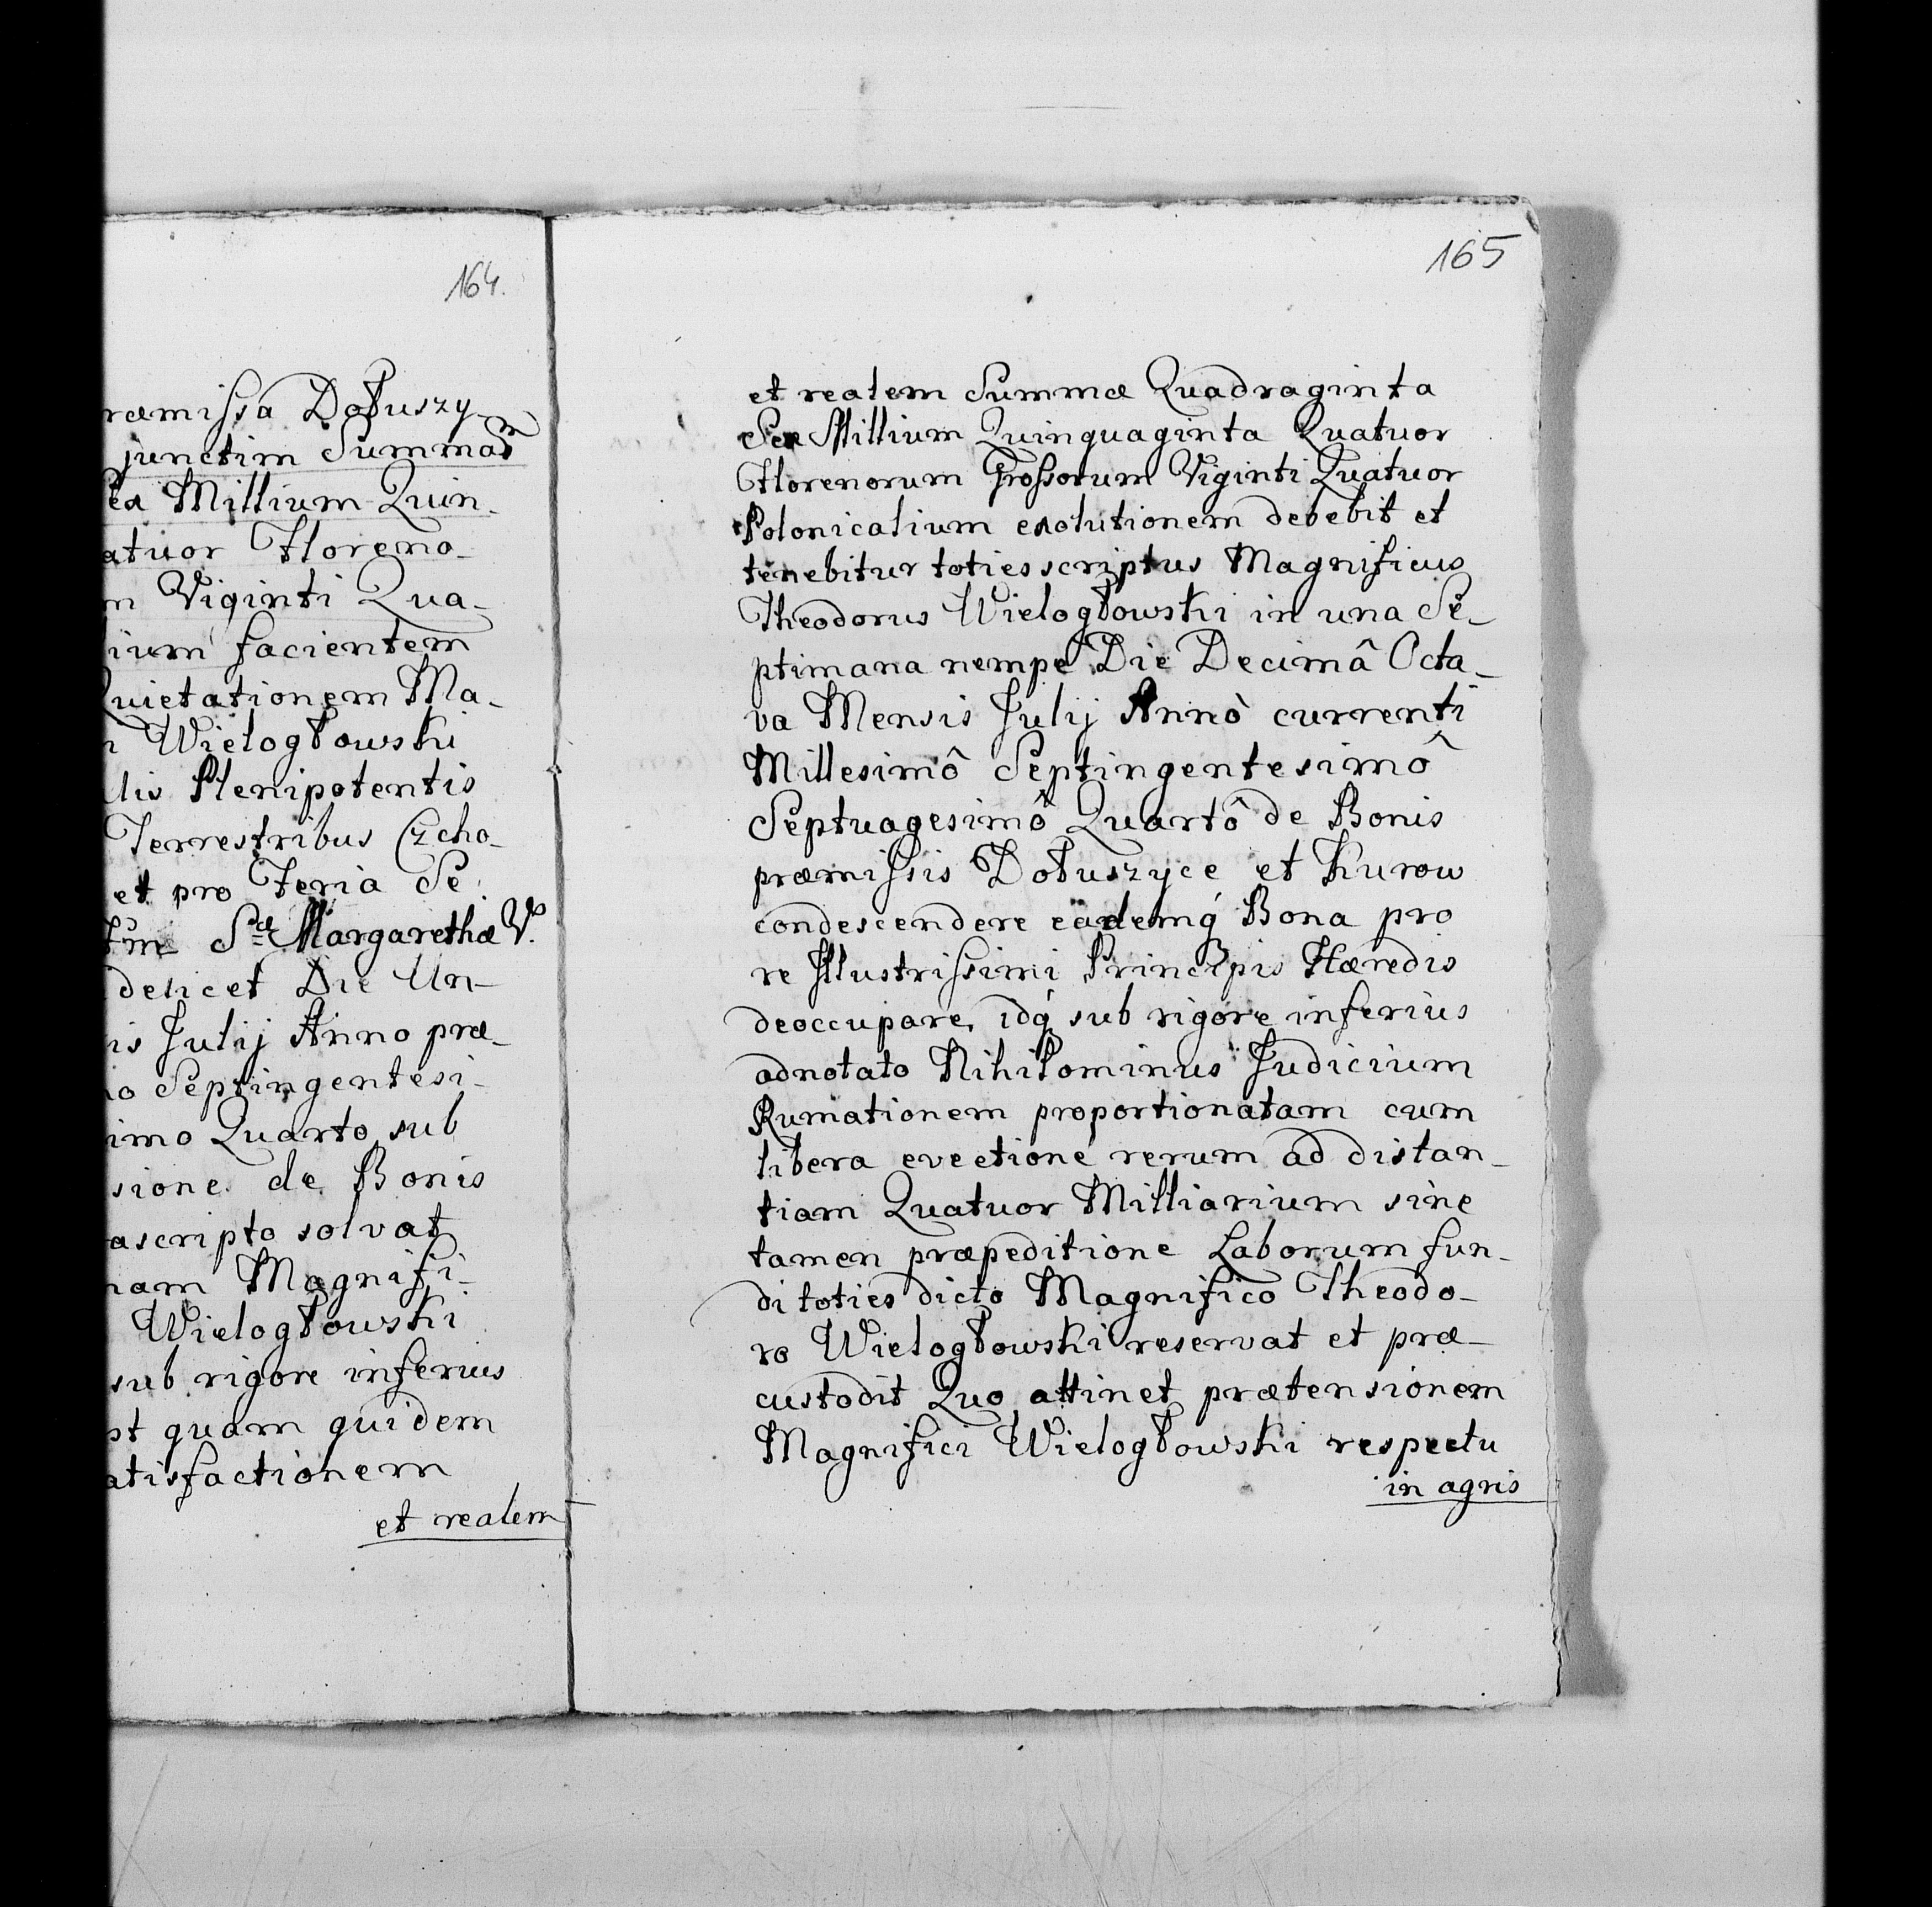 164.
ræmissa Dołuszy
junctim Summam
Sex Millium Quin-
atuor Floreno-
m Viginti Qua-
lium facientem
Quietationem Ma-
i Wielogłowski
lis Plenipotentis
Terrestribus Czcho-
et pro Feria Se
S<sup>tæ</sup> Margarethæ V.
delicet Die Un-
is Julij Anno præ-
o Septingentesi-
imo Quarto sub
sione de Bonis
ascripto solvat
nam Magnifi-
Wielogłowski
sub rigore inferius
st quam quidem
atisfactionem
et realem
165
et realem Summæ Quadraginta
Sex Millium Quinquaginta Quatuor
Florenorum Grossorum Viginti Quatuor
Polonicalium exolutionem debebit et
tenebitur toties scriptus Magnificus
Theodorus Wielogłowski in una Se-
ptimana nempe Die Decimâ Octa-
va Mensis Julij Annô currenti
Millesimô Septingentesimô
Septuagesimô Quartô de Bonis
præmissis Dołuszyce et Kurow
condescendere eademq́ Bona pro
re Illustrissimi Principis Hæredis
deoccupare, idq́ sub rigore inferius
adnotato Nihilominus Judicium
Rumationem proportionatam cum
libera evectione rerum ad distan-
tiam Quatuor Milliarium sine
tamen præpeditione Laborum fun-
di toties dicto Magnifico Theodo-
ro Wielogłowski reservat et præ-
custodit Quo attinet prætensionem
Magnifici Wielogłowski respectu
in agris